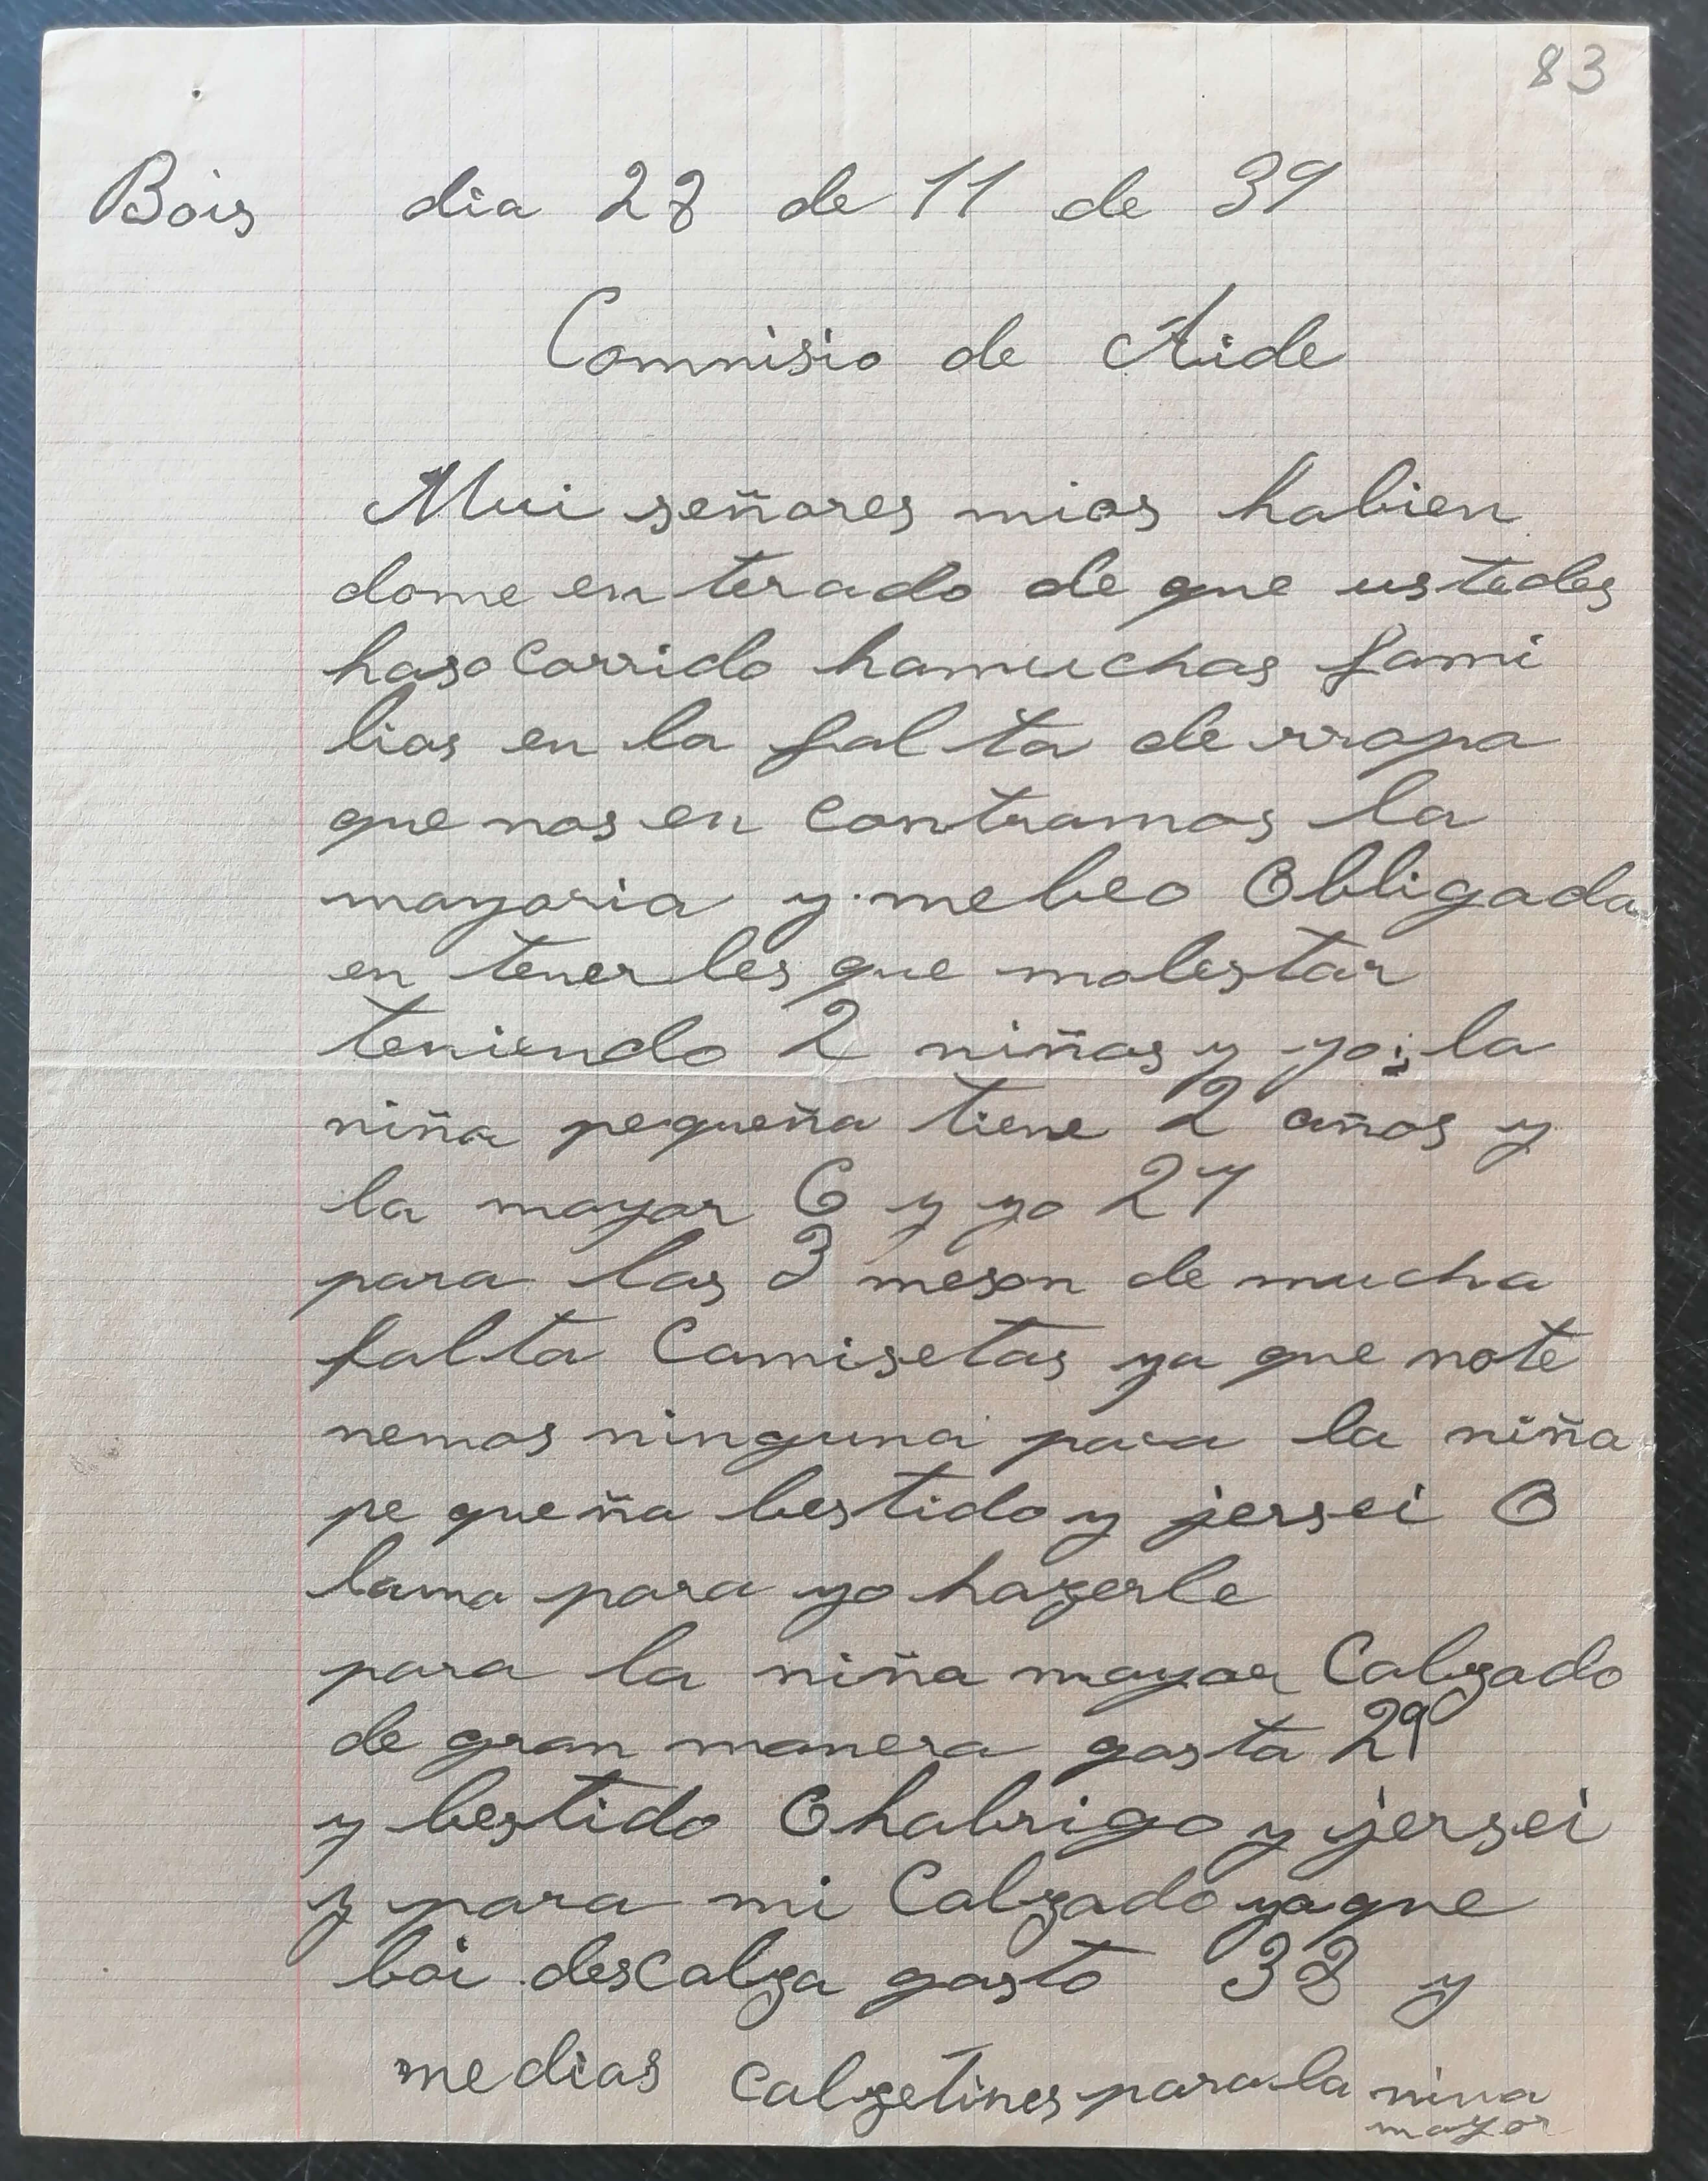 83
Bois dia 28 de 11 de 39
Commisio de Aide
Mui señores mios habien
dome en terado de que ustedes
haso corrido hamuchas fami
lias en la fal ta de rropa
que nos en contramos la
mayoria y mebeo Obligada
en tenerles que molestar
teniendo 2 niñas y yo; la
niña pequeña tiene 2 años y
la mayor 6 y yo 27
para las 3 meson de mucha
falta Camisetas ya que note
nemos ninguna para la niña
pe queña bestido y jersei O
lama para yo hazerle
para la niña mayor Calzado
de gran manera gasta 29
y bestido O habrigo y jersei
y para mi Calzado ya que
boi descalza gasto 38 y
medias Calzetines para la nina
mayor